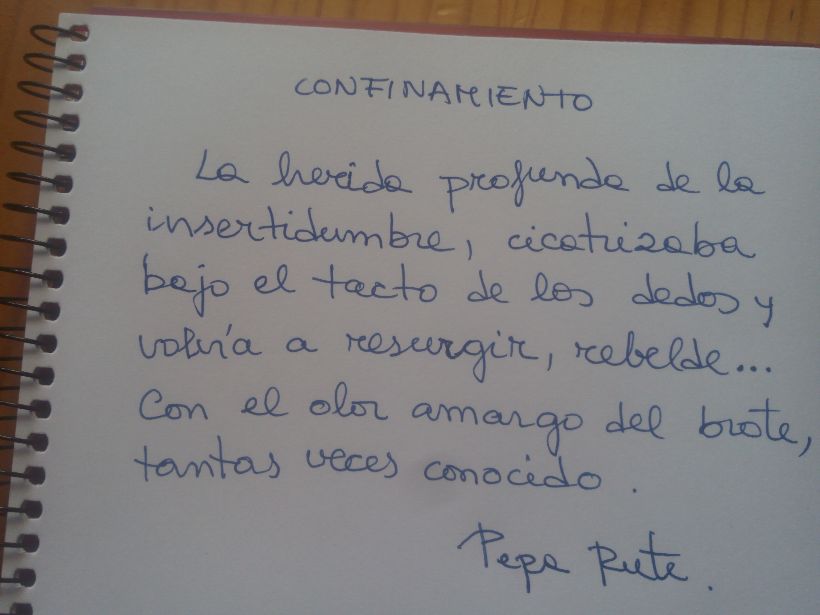 CONFINAMIENTO
La herida profunda de la
insertidumbre, cicatrizaba
bajo el tacto de los dedos y
volvía a resurgir, rebelde...
Con el olor amargo del brote,
tantas veces conocido.
Pepa Rute.